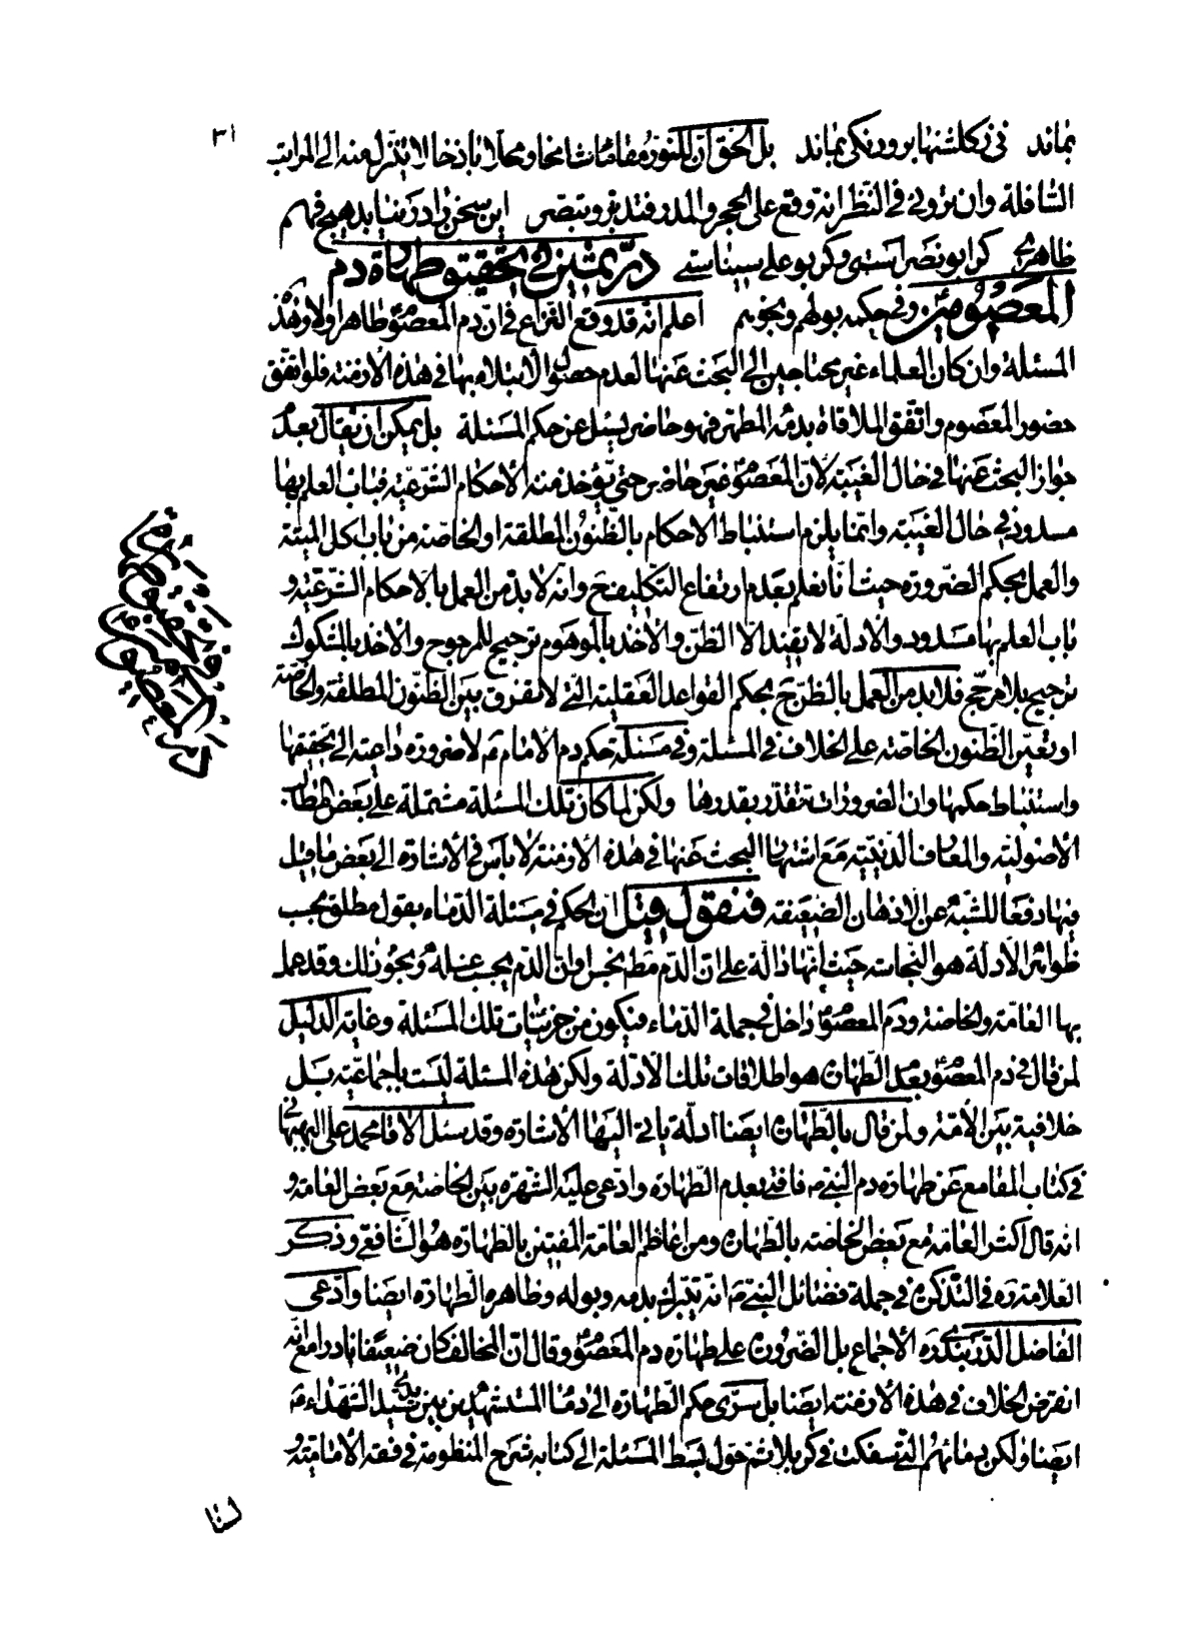 ٣١
بماند نی زکلشنها برو رنکی بماند بل الحق ان للنور مقامات شامخا ومحلا باذخا لا یتنزل عنه الی المراتب
السافلة وان یرونی فی النظر انه وقع علی الحجر والمدر فتدبر وتبصر این سخن را در نیابد هیچ فهم
ظاهری کر ابو نصر استی وکر بو علی سیناستی در یمین فی تحقیق طهارة دم
المعصومین وفی حکم بولهم ونحوهم اعلم انه قد وقع النزاع فی ان دم المعصوم طاهر اولا وهذه
المسئلة وان کان العلماء غیر محتاجین الی البحث عنها لعدم حصول الابتلاء بها فی هذه الازمنة فلو اتفق
حضور المعصوم واتفق الملاقاة بدمه المطهر فهو حاضر یسئل عن حکم المسئلة بل یمکن ان یقال بعدم
جواز البحث عنها فی حال الغیبة لان المعصوم غیر حاضر حتی یؤخذ منه الاحکام الشرعیة فباب العلم بها
مسدود فی حال الغیبة وانما یلزم استنباط الاحکام بالظنون المطلقة او الخاصة من باب اکل المیتة
والعمل بحکم الضرورة حیث انا نعلم بعدم ارتفاع التکلیف ح وانه لا بد من العمل بالاحکام الشرعیة و
باب العلم بها مسدود والادلة لا یفید الا الظن والاخذ بالموهوم ترجیح للمرجوح والاخذ بالمشکوک
ترجیح بلا مرجح فلا بد من العمل بالظن ح بحکم القواعد العقلیة التی لا تفرق بین الظنون المطلقة والخاصة
او تعین الظنون الخاصة علی الخلاف فی المسئلة وفی مسئلة حکم دم الامام ع لا ضرورة داعیة الی تحقیقها
واستنباط حکمها وان الضرورات تتقدر بقدرها ولکن لما کان تلک المسئلة مشتملة علی بعض المطالب
الاصولیة والمعارف الدینیة مع اشتهار البحث عنها فی هذه الازمنة لا باس فی الاشارة الی بعض ما قیل
فیها دفعا للشبه عن الاذهان الضعیفة فنقول قیل ان الحکم فی مسئلة الدماء بقول مطلق بحسب
ظواهر الادلة هو النجاسة حیث انها دالة علی ان الدم مط نجس وان الدم یجب غسله ونحو ذلک وقد عمل
بها العامة والخاصة ودم المعصوم داخل فی جملة الدماء فیکون من جزئیات تلک المسئلة وغایة الدلیل
لمن قال فی دم المعصوم بعدم الطهارة هو اطلاقات تلک الادلة ولکن هذه المسئلة لیست باجماعیة بل
خلافیة بین الامة ولمن قال بالطهارة ایضا ادلة یاتی الیها الاشارة وقد سئل الاقا محمد علی البهبهانی
فی کتاب المقامع عن طهارة دم النبی ص فافتی بعدم الطهارة وادعی علیه الشهرة بین الخاصة مع بعض العامة و
انه قال اکثر العامة مع بعض الخاصة بالطهارة ومن اعاظم العامة المفتین بالطهارة هو الشافعی وذکر
العلامة ره فی التذکرة فی جملة فضائل النبی ص انه یتبرک بدمه وبوله وظاهره الطهارة ایضا وادعی
الفاضل الدربندی ره الاجماع بل الضرورة علی طهارة دم المعصوم وقال ان المخالف کان ضعیفا نادرا مع انه
انقرض الخلاف فی هذه الازمنة ایضا بل سری حکم الطهارة الی دماء المستشهدین بین یدی سید الشهداء ع
ایضا ولکن دمائهم التی سفکت فی کربلا ثم حول بسط المسئلة الی کتابه شرح المنظومة فی فقه الامامیة و
لنا